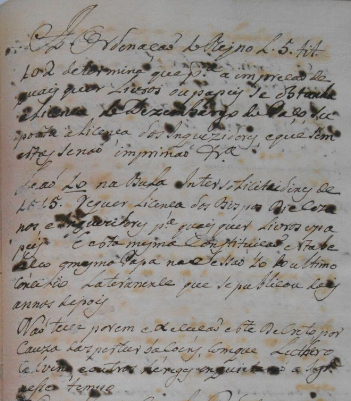 A Ordenação do Reyno L. 5. tit
102 determina que pª a impreção de
quaisquer Livros ou papeis se obtenha
a Licença do Dezembargo do Paço, su
posta a Licença dos Inquizidores, e que sem
estas se não imprimão
Leão 10 na Bula Inter Solicitudines de
1515. requer Licença dos Bispos Dioceza
nos, e Inquizidores pª quaisquer Livros ou pa
peis. E esta mesma Constituição estabe
leceo o mesmo Papa na Sessão 10 do ultimo
Concilio Lateranense que se publicou
annos depois
Não teve porem execução este Decreto por
cauza das perturbaçoens, com que Luthero
Calvino e outros hereges inquietarão a Igre
nesse tempo